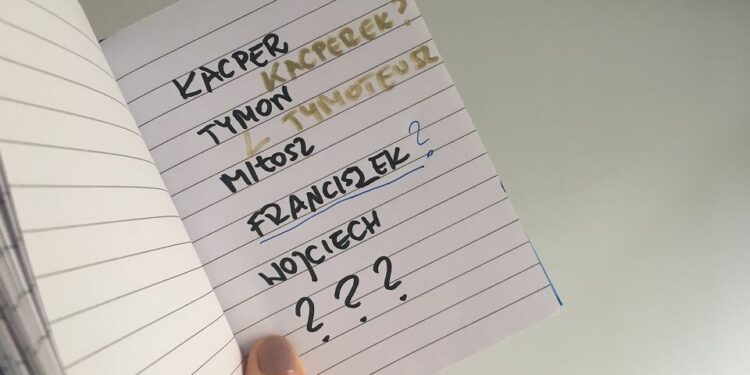 KACPER KACPEREK?
TYMON TYMOTEUSZ
MIŁOSZ
FRANCISZEK?
WOJCIECH
???